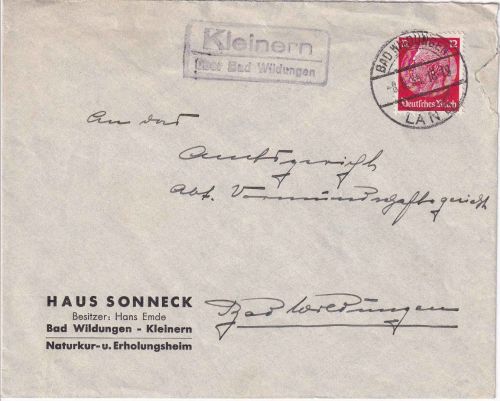 Kleinern
über Bad Wildungen
BAD WILDUNGEN
LAND
12
Deutsches Reich
An das
Amtsgericht
Abt. Vormundschaftsgericht
Bad Wildungen
HAUS SONNECK
Besitzer: Hans Emde
Bad Wildungen - Kleinern
Naturkur- u. Erholungsheim